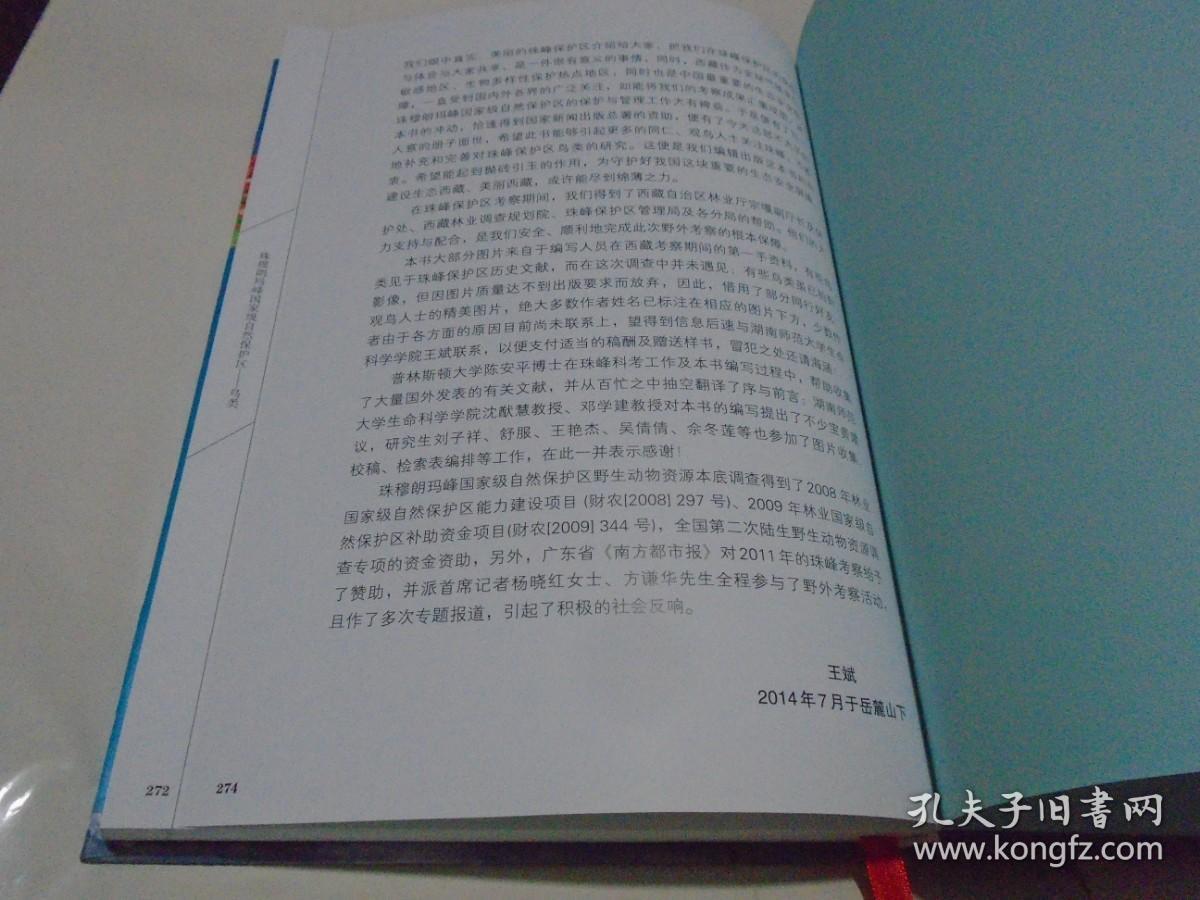 我们眼中真实、美丽的珠峰保护区介绍给大家，把我们在珠峰保护区
与体会与大家共享，是一件很有意义的事情，同时，西藏作为全球
敏感地区、生物多样性保护热点地区，同时也是中国最重要的生态安全
障，一直受到国内外各界的广泛关注，如能将我们的考察成果汇集成册
珠穆朗玛峰国家级自然保护区的保护与管理工作大有裨益。于是便有了
本书的冲动，恰逢得到国家新闻出版总署的资助，便有了今天这部
人意的册子面世，希望此书能够引起更多的同仁、观鸟人士关注珠峰，
地补充和完善对珠峰保护区鸟类的研究。这便是我们编辑出版这本书的
衷。希望能起到抛砖引玉的作用，为守护好我国这块重要的生态安全屏障
建设生态西藏、美丽西藏，或许能尽到绵薄之力。
在珠峰保护区考察期间，我们得到了西藏自治区林业厅宗嘎副厅长及
护处、西藏林业调查规划院、珠峰保护区管理局及各分局的帮助。他们的大
力支持与配合，是我们安全、顺利地完成此次野外考察的根本保障。
本书大部分图片来自于编写人员在西藏考察期间的第一手资料，有些鸟
类见于珠峰保护区历史文献，而在这次调查中并未遇见；有些鸟类虽已拍到
影像，但因图片质量达不到出版要求而放弃，因此，借用了部分同行好友、
观鸟人士的精美图片，绝大多数作者姓名已标注在相应的图片下方，少数作
者由于各方面的原因目前尚未联系上，望得到信息后速与湖南师范大学生命
科学学院王斌联系，以便支付适当的稿酬及赠送样书，冒犯之处还请海涵！
普林斯顿大学陈安平博士在珠峰科考工作及本书编写过程中，帮助收集
了大量国外发表的有关文献，并从百忙之中抽空翻译了序与前言；湖南师范
大学生命科学学院沈猷慧教授、邓学建教授对本书的编写提出了不少宝贵建
议，研究生刘子祥、舒服、王艳杰、吴倩倩、佘冬莲等也参加了图片收集、
校稿、检索表编排等工作，在此一并表示感谢！
珠穆朗玛峰国家级自然保护区野生动物资源本底调查得到了2008年林业
国家级自然保护区能力建设项目 (财农[2008] 297 号)、2009 年林业国家级自
然保护区补助资金项目(财农[2009] 344 号)，全国第二次陆生野生动物资源调
查专项的资金资助，另外，广东省《南方都市报》对2011年的珠峰考察给予
了赞助，并派首席记者杨晓红女士、方谦华先生全程参与了野外考察活动，
且作了多次专题报道，引起了积极的社会反响。
王斌
2014年7月于岳麓山下
珠穆朗玛峰国家级自然保护区——鸟类
272
274
孔夫子旧书网
www.kongfz.com